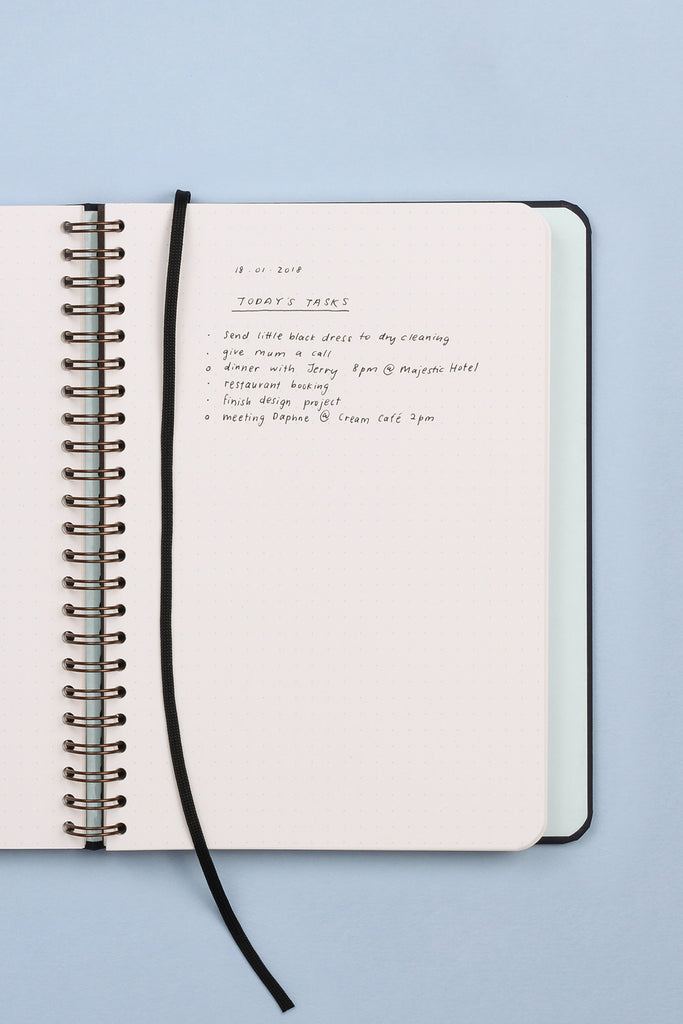 18.01.2018
TODAY'S TASKS
· send little black dress to dry cleaning
· give mum a call
o dinner with Jerry 8pm @ Majestic Hotel
· restaurant booking
· finish design project
o meeting Daphne @ Cream Café 2pm